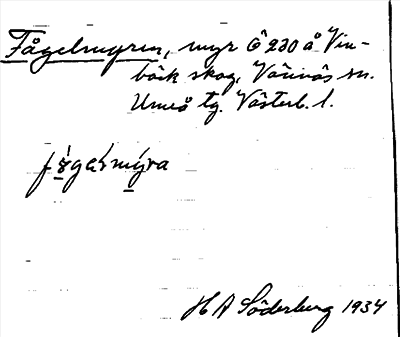 Fågelmyren, myr Ö 230 å Vin-
bäck skog, Vännäs sn.
Umeå tg. Västerb. l.
H A Söderberg 1934